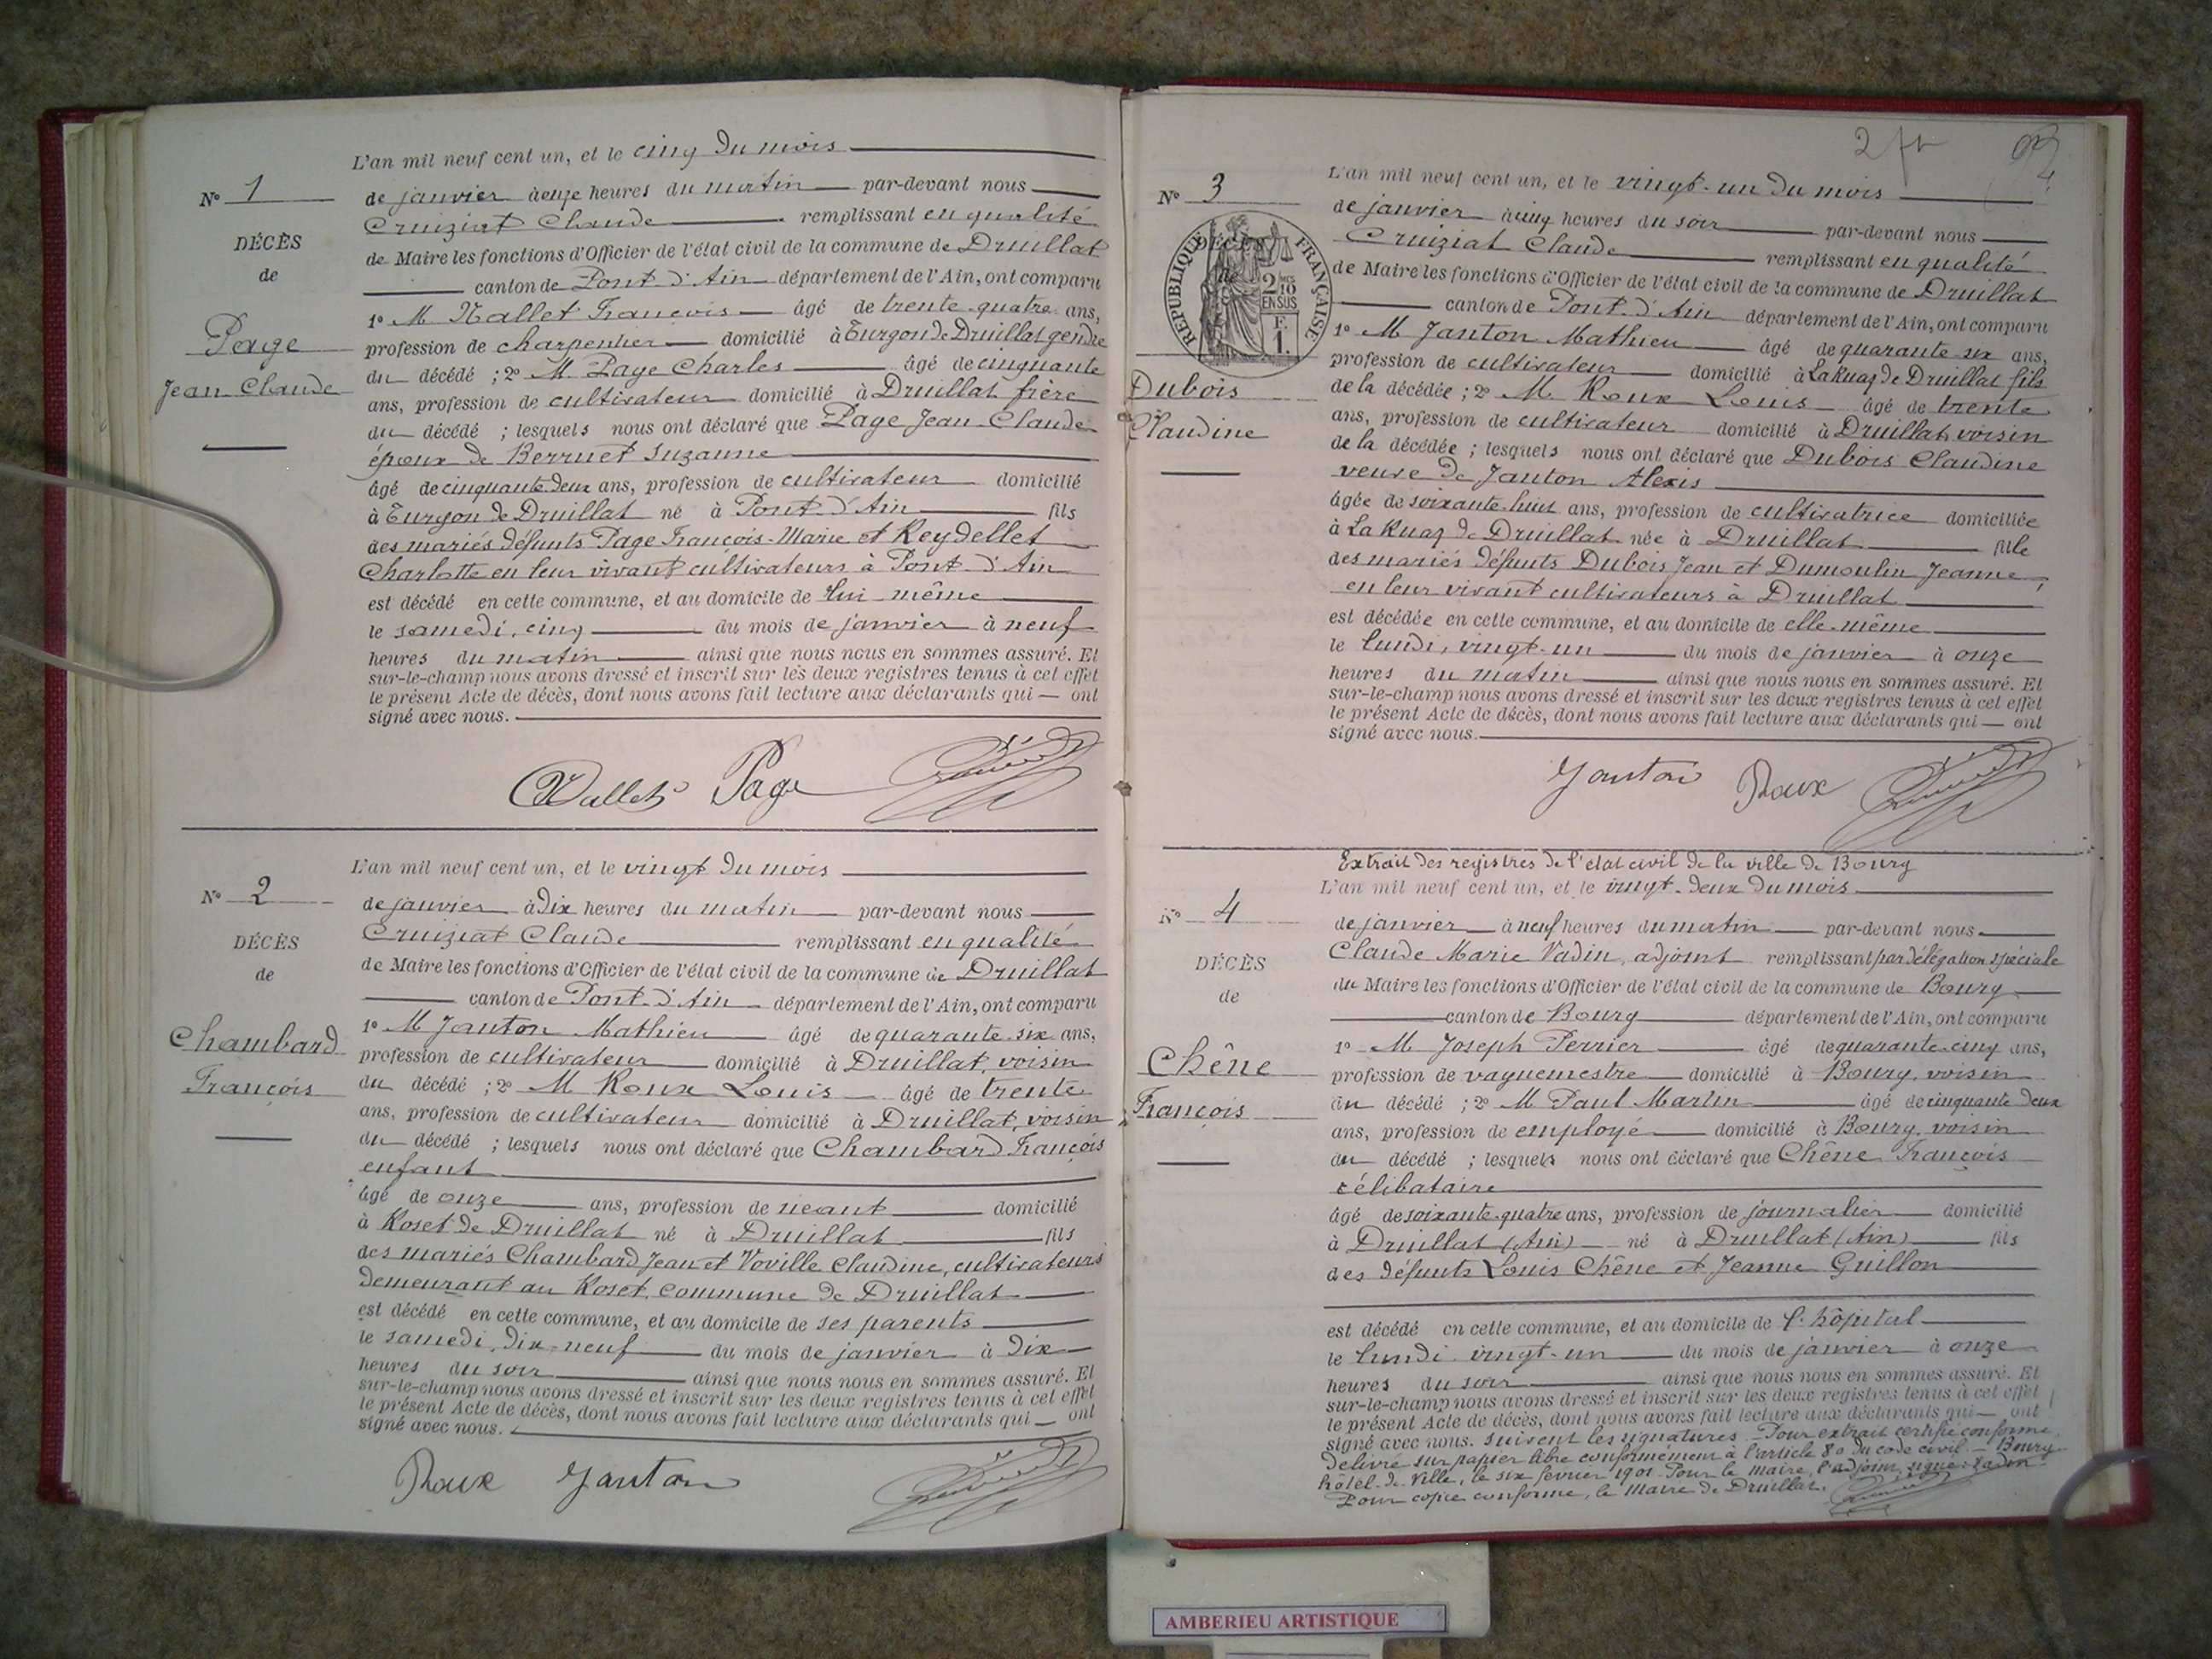 L'an mil neuf cent un, et le cinq du mois
N° 1
de janvier à onze heures du matin par-devant nous
Cruiziat Claude remplissant en qualité
DÉCÈS
de Maire les fonctions d'Officier de l'état civil de la commune de Druillat
de
canton de Pont d'Ain département de l'Ain, ont comparu
1° M Vallet François âgé de trente quatre ans,
Page
profession de charpentier domicilié à Turgon de Druillat gendre
du décédé ; 2° M. Page Charles âgé de cinquante
Jean Claude
ans, profession de cultivateur domicilié à Druillat frère
du décédé ; lesquels nous ont déclaré que Page Jean-Claude
époux de Berruet Suzanne
âgé de cinquante deux ans, profession de cultivateur domicilié
à Turgon de Druillat né à Pont-d'Ain fils
des mariés défunts Page François-Marie et Reydellet
Charlotte en leur vivant cultivateurs à Pont-d'Ain
est décédé en cette commune, et au domicile de lui-même
le samedi, cinq du mois de janvier à neuf
heures du matin ainsi que nous nous en sommes assuré. Et
sur-le-champ nous avons dressé et inscrit sur les deux registres tenus à cet effet
le présent Acte de décès, dont nous avons fait lecture aux déclarants qui ont
signé avec nous.
Vallet Page
L'an mil neuf cent un, et le vingt du mois
N° 2
de janvier à dix heures du matin par-devant nous
Cruiziat Claude remplissant en qualité
DÉCÈS
de Maire les fonctions d'Officier de l'état civil de la commune de Druillat
de
canton de Pont-d'Ain département de l'Ain, ont comparu
1° M Janton Mathieu âgé de quarante-six ans,
Chambard
profession de cultivateur domicilié à Druillat, voisin
du décédé ; 2° M Roux Louis âgé de trente
François
ans, profession de cultivateur domicilié à Druillat, voisin
du décédé ; lesquels nous ont déclaré que Chambard François
enfant
âgé de onze ans, profession de néant domicilié
à Roset de Druillat né à Druillat fils
des mariés Chambard Jean et Voville Claudine, cultivateurs
demeurant au Roset, commune de Druillat
est décédé en cette commune, et au domicile de ses parents
le samedi, dix-neuf du mois de janvier à dix
heures du soir ainsi que nous nous en sommes assuré. Et
sur-le-champ nous avons dressé et inscrit sur les deux registres tenus à cet effet
le présent Acte de décès, dont nous avons fait lecture aux déclarants qui ont
signé avec nous.
Roux Janton
2 fr
L'an mil neuf cent un, et le vingt-un du mois
N° 3
de janvier à cinq heures du soir par-devant nous
Cruiziat Claude remplissant en qualité
DÉCÈS
de
RÉPUBLIQUE FRANÇAISE
2/10 EN SUS
F. 1.
de Maire les fonctions d'Officier de l'état civil de la commune de Druillat
canton de Pont-d'Ain département de l'Ain, ont comparu
1° M Janton Mathieu âgé de quarante six ans,
profession de cultivateur domicilié à La Ruaz de Druillat fils
Dubois
de la décédée ; 2° M. Roux Louis âgé de trente
ans, profession de cultivateur domicilié à Druillat, voisin
Claudine
de la décédée ; lesquels nous ont déclaré que Dubois Claudine
veuve de Janton Alexis
âgée de soixante-huit ans, profession de cultivatrice domiciliée
à La Ruaz de Druillat née à Druillat fille
des mariés défunts Dubois Jean et Dumoulin Jeanne,
en leur vivant cultivateurs à Druillat
est décédée en cette commune, et au domicile de elle-même
le lundi, vingt-un du mois de janvier à onze
heures du matin ainsi que nous nous en sommes assuré. Et
sur-le-champ nous avons dressé et inscrit sur les deux registres tenus à cet effet
le présent Acte de décès, dont nous avons fait lecture aux déclarants qui ont
signé avec nous.
Janton Roux
Extrait des registres de l'état civil de la ville de Bourg
L'an mil neuf cent un, et le vingt-deux du mois
N° 4
de janvier à neuf heures du matin par-devant nous
Claude Marie Vadin, adjoint remplissant par délégation spéciale
DÉCÈS
du Maire les fonctions d'Officier de l'état civil de la commune de Bourg
de
canton de Bourg département de l'Ain, ont comparu
1° M Joseph Perrier âgé de quarante-cinq ans,
Chêne
profession de vaguemestre domicilié à Bourg, voisin
du décédé ; 2° M Paul Martin âgé de cinquante deux
François
ans, profession de employé domicilié à Bourg, voisin
du décédé ; lesquels nous ont déclaré que Chêne François
célibataire
âgé de soixante-quatre ans, profession de journalier domicilié
à Druillat (Ain) né à Druillat (Ain) fils
des défunts Louis Chêne et Jeanne Guillon
est décédé en cette commune, et au domicile de l'hôpital
le lundi vingt-un du mois de janvier à onze
heures du soir ainsi que nous nous en sommes assuré. Et
sur-le-champ nous avons dressé et inscrit sur les deux registres tenus à cet effet
le présent Acte de décès, dont nous avons fait lecture aux déclarants qui ont
signé avec nous. Suivent les signatures. Pour extrait certifié conforme
délivré sur papier libre conformément à l'article 80 du code civil — Bourg
hôtel-de-Ville, le six février 1901. Pour le maire, l'adjoint signé : Vadin
Pour copie conforme, le Maire de Druillat,
AMBERIEU ARTISTIQUE